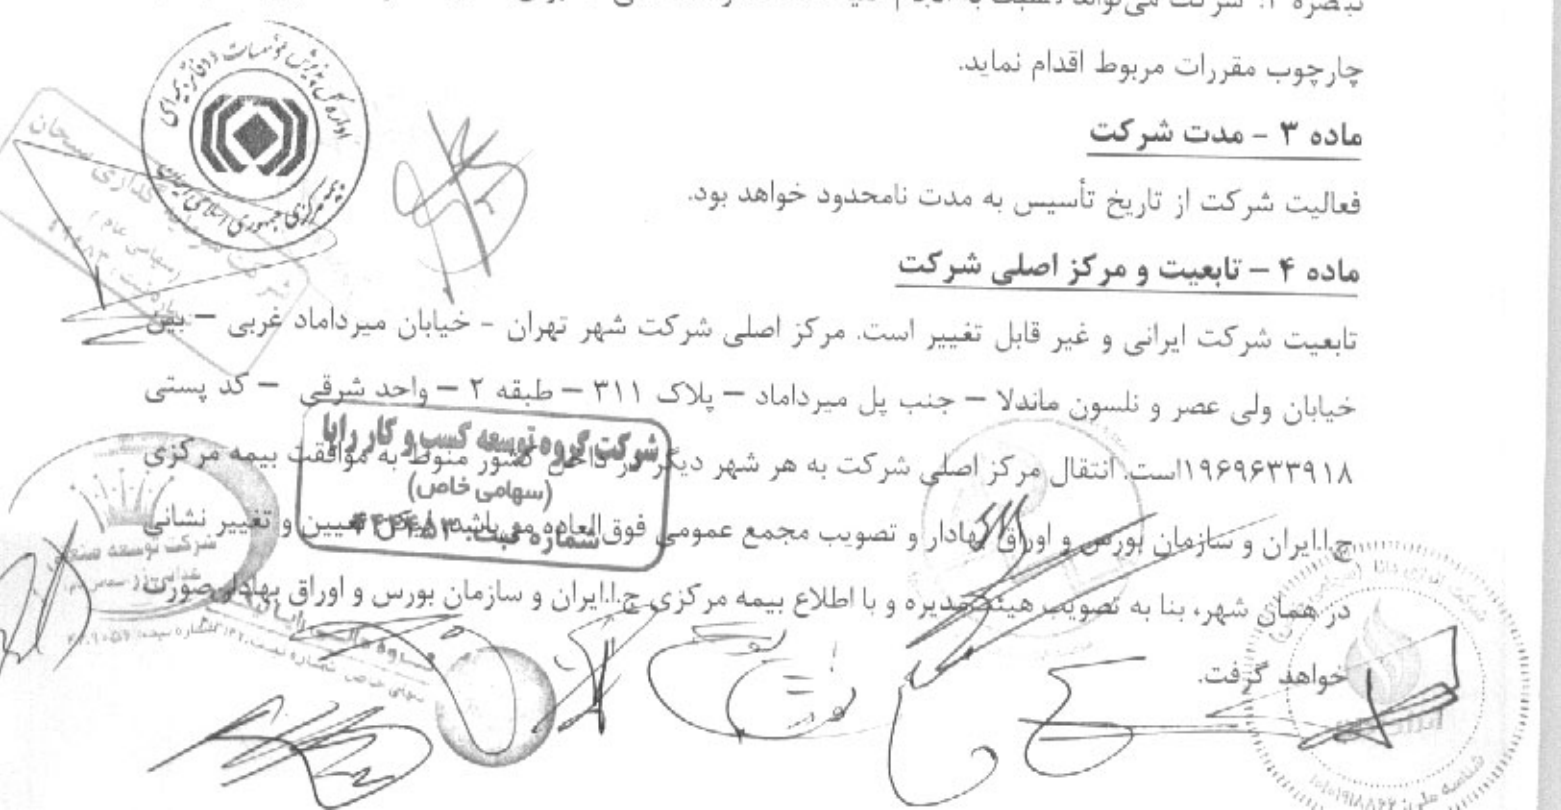 تبصره ۲: شرکت می‌تواند نسبت به انجام
چارچوب مقررات مربوط اقدام نماید.
ماده ۳ – مدت شرکت
فعالیت شرکت از تاریخ تأسیس به مدت نامحدود خواهد بود.
ماده ۴ – تابعیت و مرکز اصلی شرکت
تابعیت شرکت ایرانی و غیر قابل تغییر است. مرکز اصلی شرکت شهر تهران - خیابان میرداماد غربی – بین
خیابان ولی عصر و نلسون ماندلا – جنب پل میرداماد – پلاک ۳۱۱ – طبقه ۲ – واحد شرقی – کد پستی
۱۹۶۹۶۳۳۹۱۸است. انتقال مرکز اصلی شرکت به هر شهر دیگر در داخل کشور منوط به موافقت بیمه مرکزی
ج.ا.ایران و سازمان بورس و اوراق بهادار و تصویب مجمع عمومی فوق العاده می باشد. لیکن تعیین و تغییر نشانی
در همان شهر، بنا به تصویب هیئت مدیره و با اطلاع بیمه مرکزی ج.ا.ایران و سازمان بورس و اوراق بهادار صورت
خواهد گرفت.
بیمه مرکزی جمهوری اسلامی ایران
(سهامی عام)
شرکت گروه توسعه کسب و کار رایا
(سهامی خاص)
شماره ثبت:
شرکت توسعه
شناسه ملی: